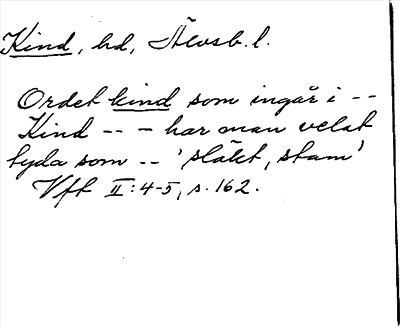 Kind, hd, Älvsb. l.
Ordet kind som ingår i --
Kind -- - har man velat
tyda som -- 'släkt, stam'
Vft II:4-5, s. 162.